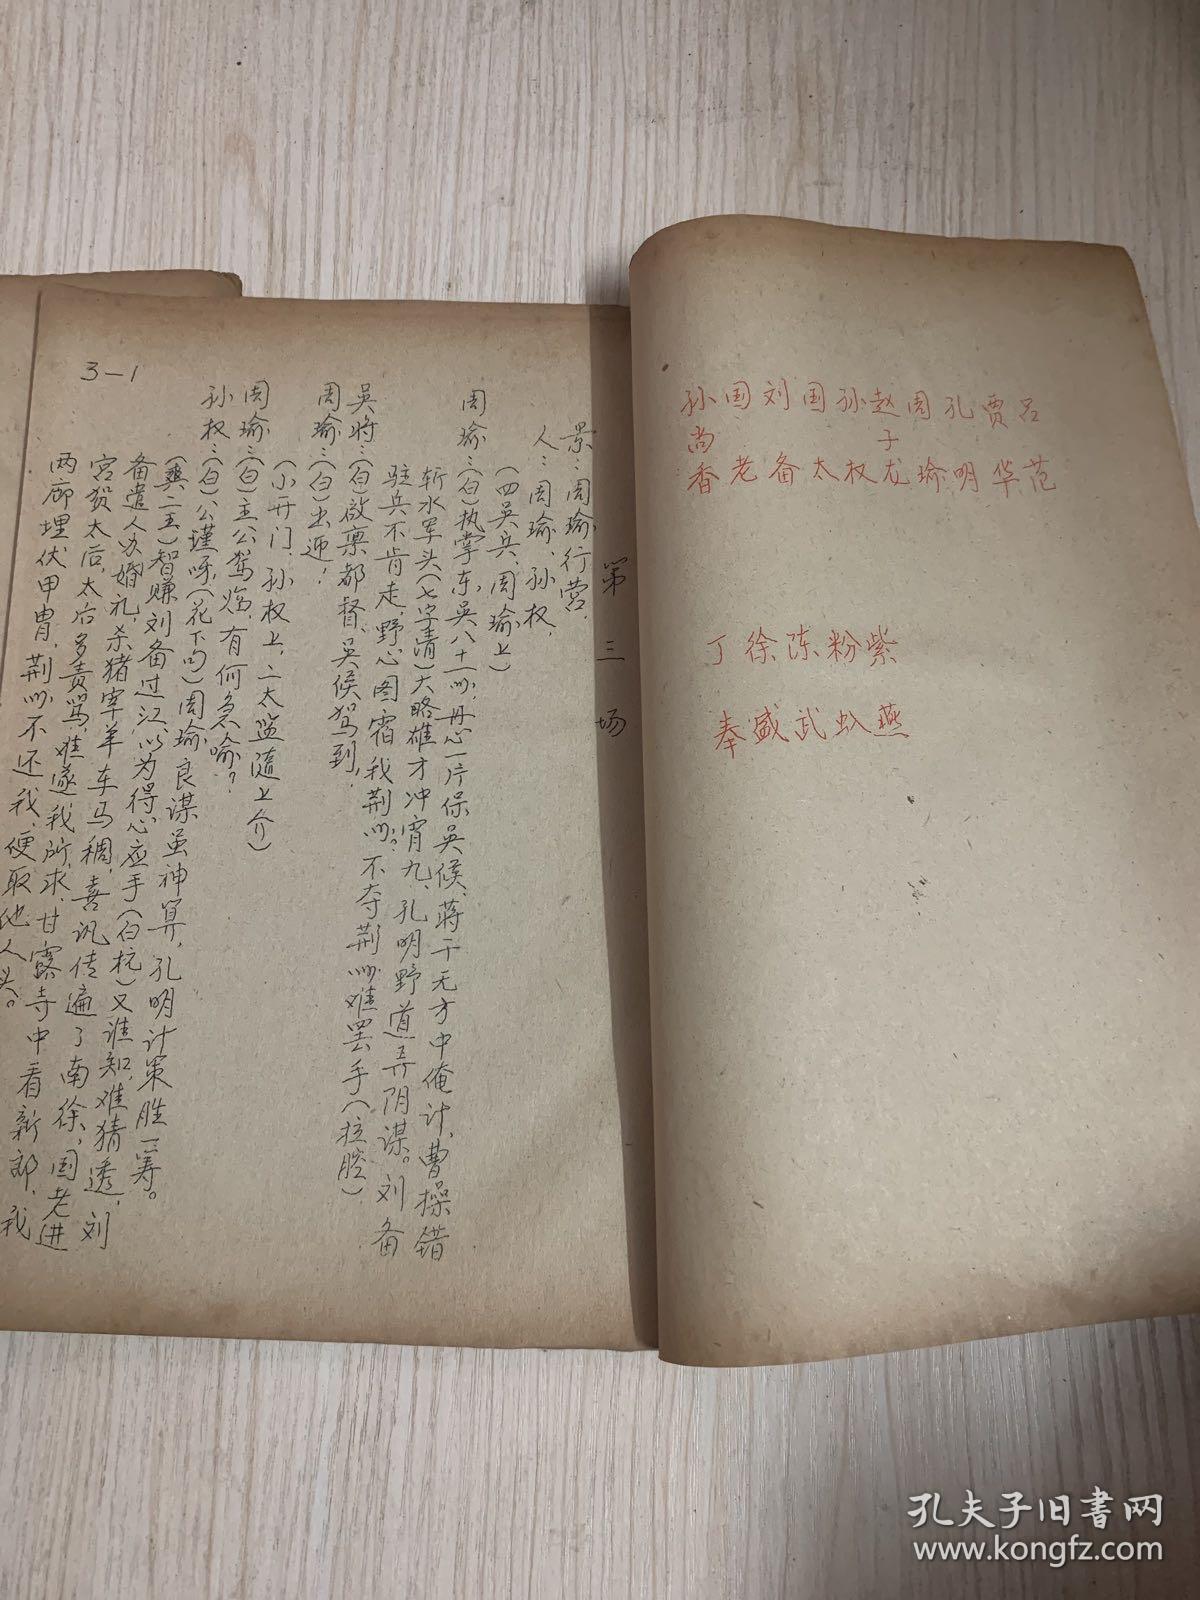 吕范
贾华
孔明
周瑜
赵子龙
孙权
国太
刘备
国老
孙尚香
紫燕
粉虬
陈武
徐盛
丁奉
第三场
景：周瑜行营，
人：周瑜、孙权，
（四吴兵、周瑜上）
周瑜：（白）执掌东吴八十一州，丹心一片保吴候、蒋干无方中俺计，曹操错
斩水军头（七字清）大略雄才冲宵九、孔明野道弄阴谋。刘备
驻兵不肯走，野心图霸我荆州？不夺荆州难罢手（拉腔）
吴将：（白）啟禀都督、吴候驾到，
周瑜：（白）出迎，
（小开门、孙权上，二太监随上介）
周瑜：（白）主公驾临，有何急喻？
孙权：（白）公瑾呀，（花下句）周瑜良谋虽神算，孔明计策胜一筹。
（爽二王）智赚刘备过江，以为得心应手（白杬）又谁知，难猜透，刘
备遣人办婚礼，杀猪宰羊车马稠，喜讯传遍了南徐，国老进
宫贺太后，太后多责骂，难遂我所求，甘露寺中看新郎，我
两廊埋伏甲胄，荆州不还我，便取他人头。
3-1
孔夫子旧书网
www.kongfz.com